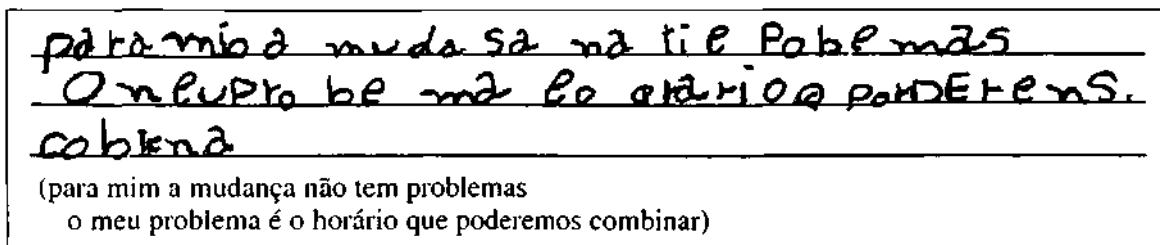 para mio a muda sa na tie Pobemas
O neupro be ma eo orario q porDErens.
coblena
(para mim a mudança não tem problemas
o meu problema é o horário que poderemos combinar)